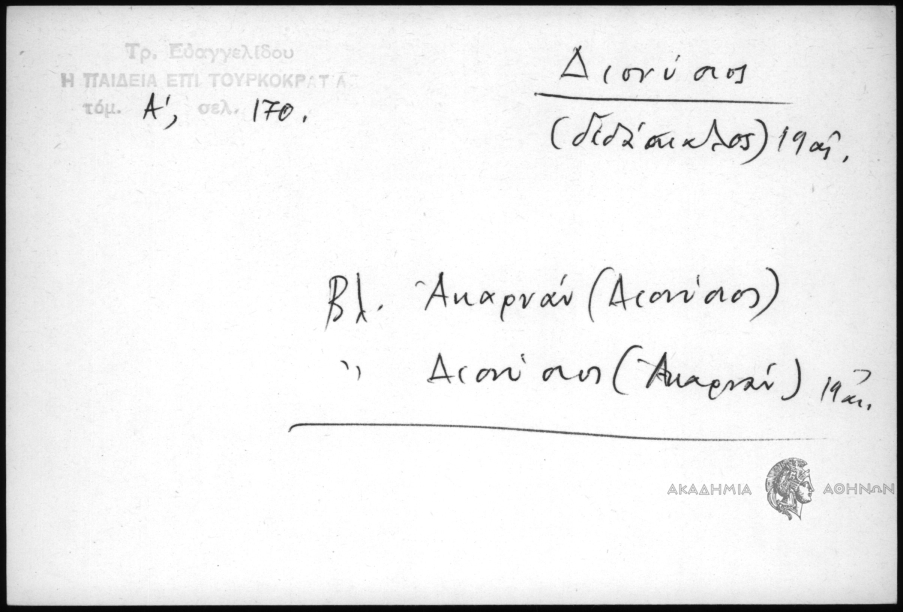 Τρ. Ευαγγελίδου
Η ΠΑΙΔΕΙΑ ΕΠΙ ΤΟΥΡΚΟΚΡΑΤΙΑΣ
τόμ. Α', σελ. 170.
Διονύσιος
(διδάσκαλος) 19 αἰ.
Βλ. Ἀκαρνάν (Διονύσιος)
" Διονύσιος (Ἀκαρνάν) 19 αἰ.
ΑΚΑΔΗΜΙΑ ΑΘΗΝΩΝ